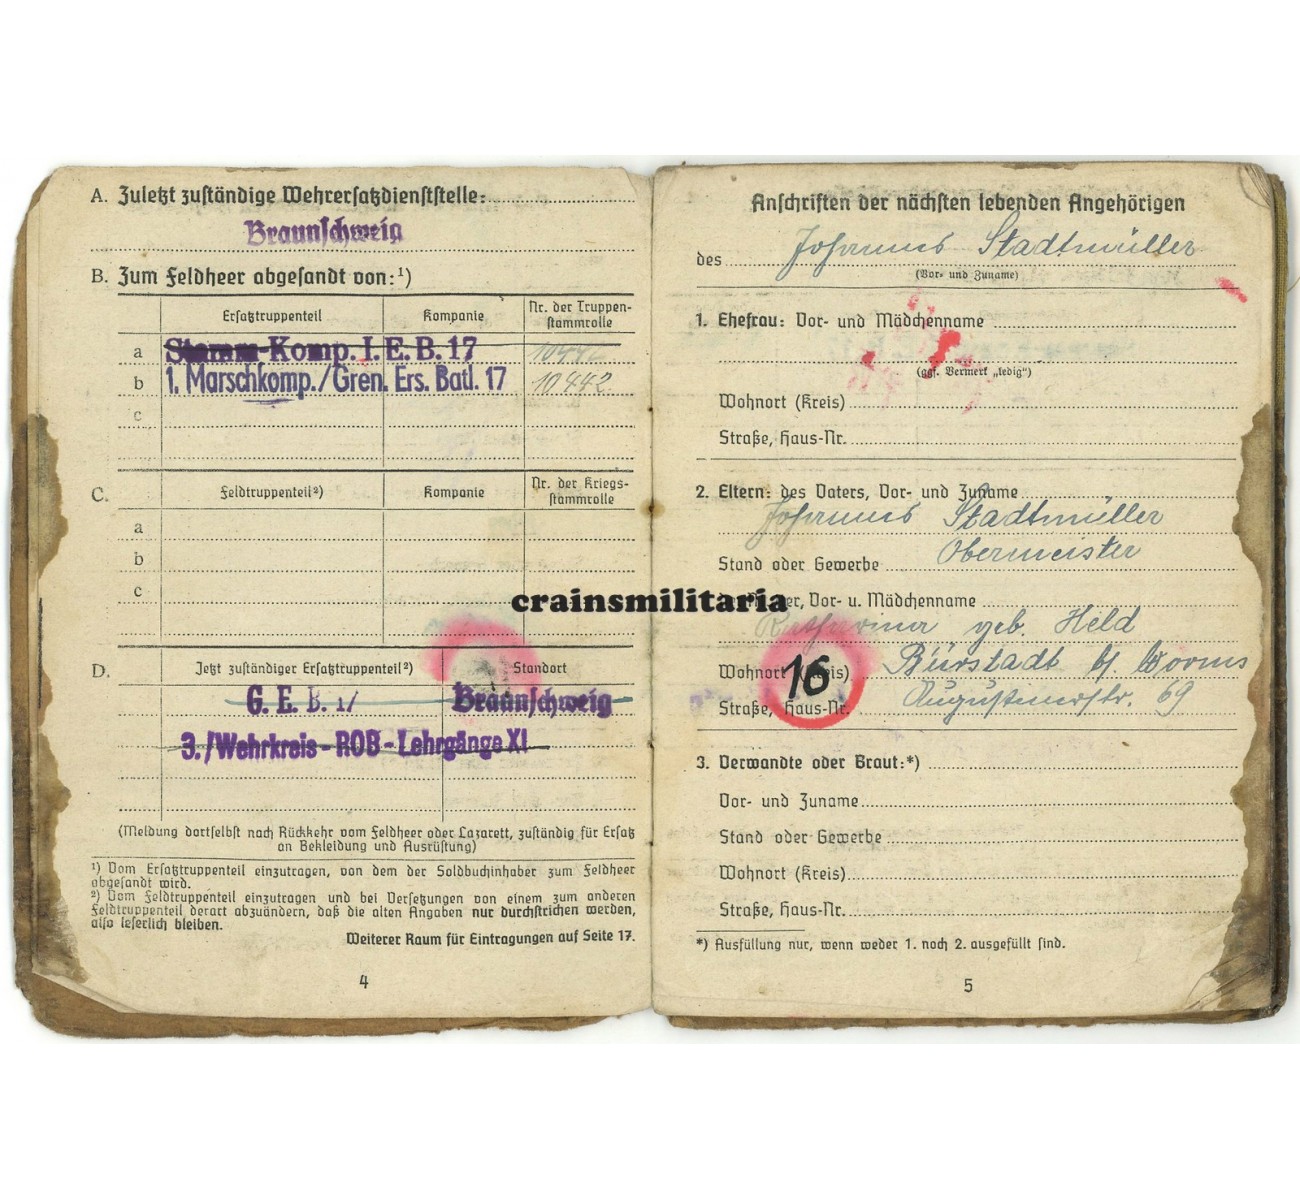 A. Zuletzt zuständige Wehrersatzdienststelle:
Braunschweig
B. Zum Feldheer abgesandt von:¹)
Ersatztruppenteil Kompanie Nr. der Truppen-
stammrolle
a Stamm-Komp. I. E. B. 17 10442
b 1. Marschkomp./Gren. Ers. Batl. 17 10442
c
C. Feldtruppenteil²) Kompanie Nr. der Kriegs-
stammrolle
a
b
c
D. Jetzt zuständiger Ersatztruppenteil²) Standort
G. E. B. 17 Braunschweig
3./Wehrkreis-ROB-Lehrgänge XI
(Meldung dortselbst nach Rückkehr vom Feldheer oder Lazarett, zuständig für Ersatz
an Bekleidung und Ausrüstung)
¹) Vom Ersatztruppenteil einzutragen, von dem der Soldbuchinhaber zum Feldheer
abgesandt wird.
²) Vom Feldtruppenteil einzutragen und bei Versetzungen von einem zum anderen
Feldtruppenteil derart abzuändern, daß die alten Angaben nur durchstrichen werden,
also leserlich bleiben.
Weiterer Raum für Eintragungen auf Seite 17.
4
Anschriften der nächsten lebenden Angehörigen
des Johannes Stadtmüller
(Vor- und Zuname)
1. Ehefrau: Vor- und Mädchenname
(ggf. Vermerk „ledig“)
Wohnort (Kreis)
Straße, Haus-Nr.
2. Eltern: des Vaters, Vor- und Zuname
Johannes Stadtmüller
Stand oder Gewerbe Obermeister
crainsmilitaria
Vor- u. Mädchenname
Katharina geb. Held
Wohnort (Kreis) Bürstadt b/ Worms
16
Straße, Haus-Nr. Augustinerstr. 69
3. Verwandte oder Braut:*)
Vor- und Zuname
Stand oder Gewerbe
Wohnort (Kreis)
Straße, Haus-Nr.
*) Ausfüllung nur, wenn weder 1. noch 2. ausgefüllt sind.
5